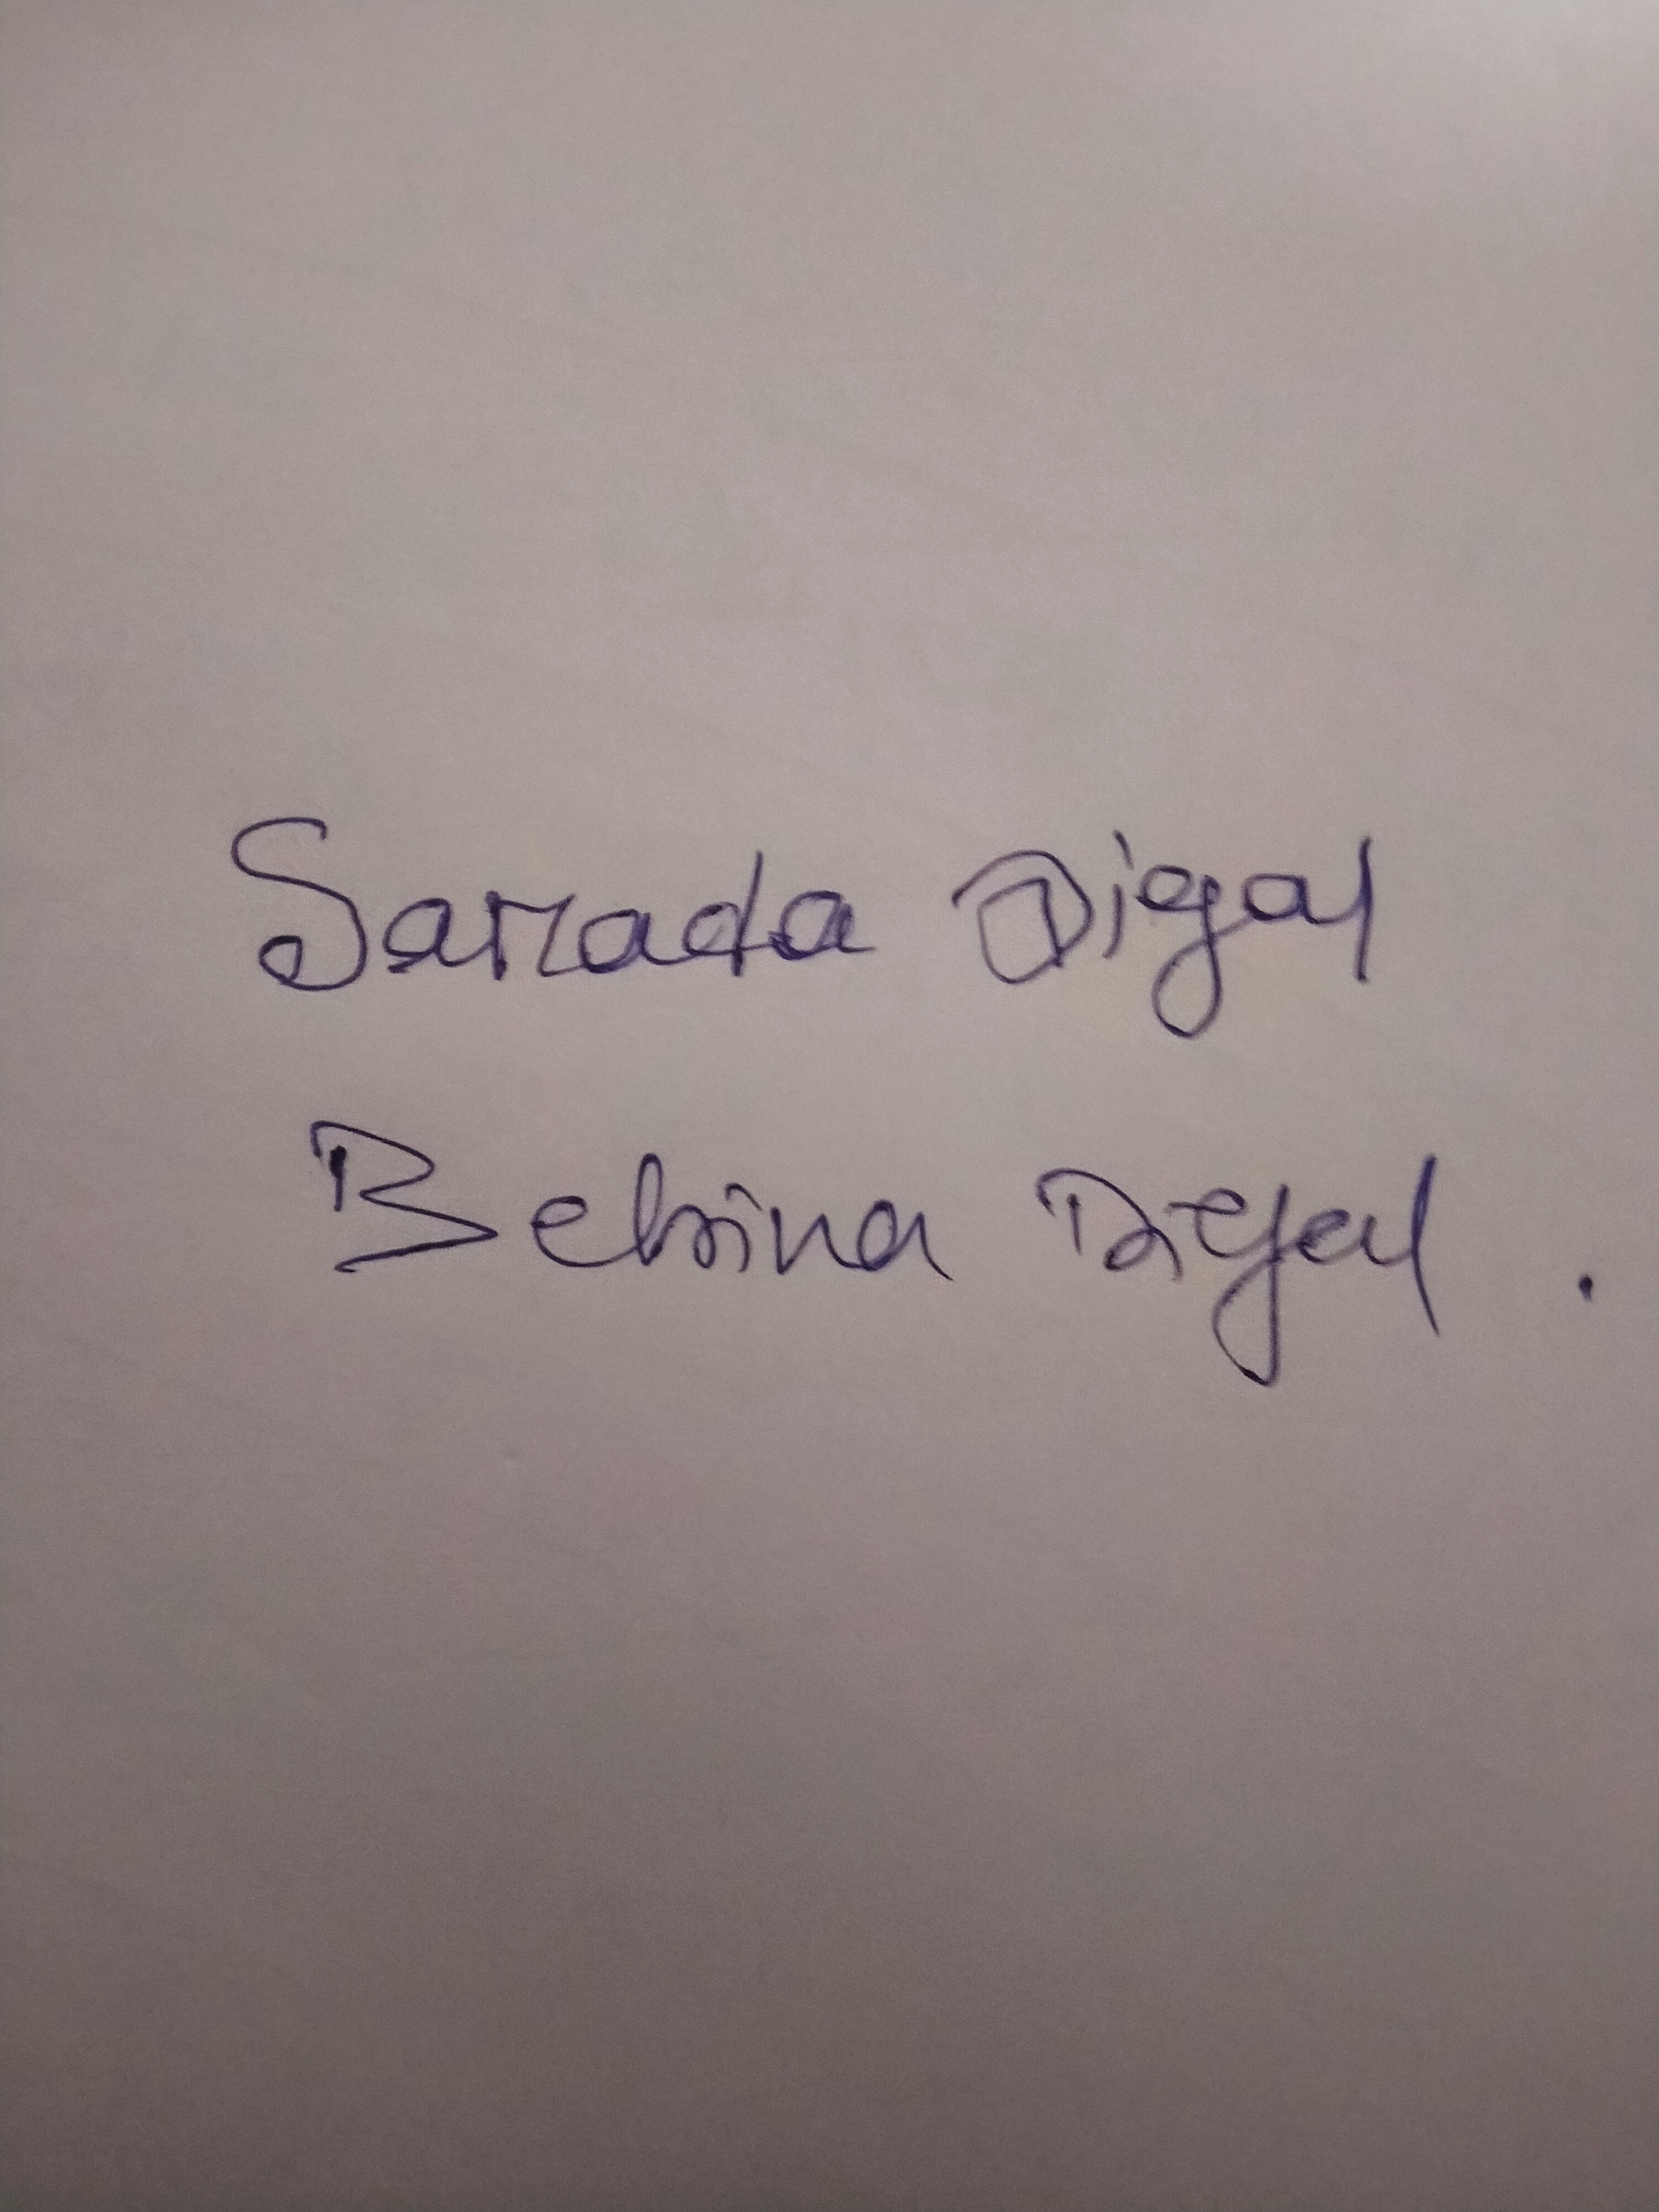 Sarada Digal
Bebina Digal .